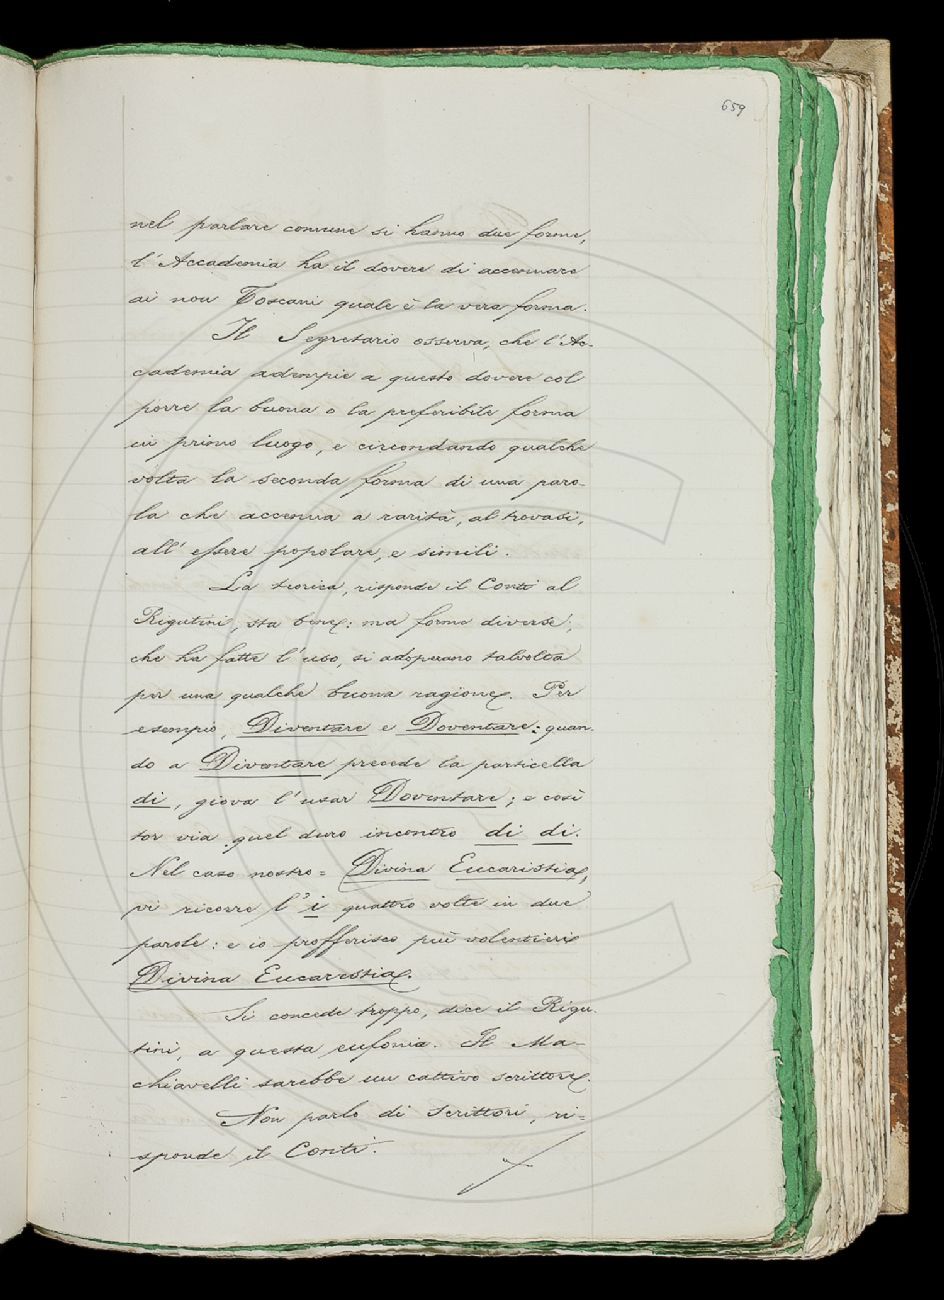 659
nel parlare comune si hanno due forme,
l'Accademia ha il dovere di accennare
ai non Toscani quale è la vera forma.
Il Segretario osserva, che l'Ac-
cademia adempie a questo dovere col
porre la buona o la preferibile forma
in primo luogo, e circondando qualche
volta la seconda forma di una paro-
la che accenna a rarità, al trovasi,
all'essere popolare, e simili.
La teorica, risponde il Conti al
Rigutini, sta bene: ma forme diverse,
che ha fatte l'uso, si adoperano talvolta
per una qualche buona ragione. Per
esempio, Diventare e Doventare: quan-
do a Diventare precede la particella
di, giova l'usar Doventare; e così
tor via quel duro incontro di di.
Nel caso nostro = Divina Eucaristia,
vi ricorre l'i quattro volte in due
parole: e io profferisco più volentieri
Divina Eucarestia.
Si concede troppo, dice il Rigu-
tini, a questa eufonia. Il Ma-
chiavelli sarebbe un cattivo scrittore.
Non parlo di scrittori, ri-
sponde il Conti.